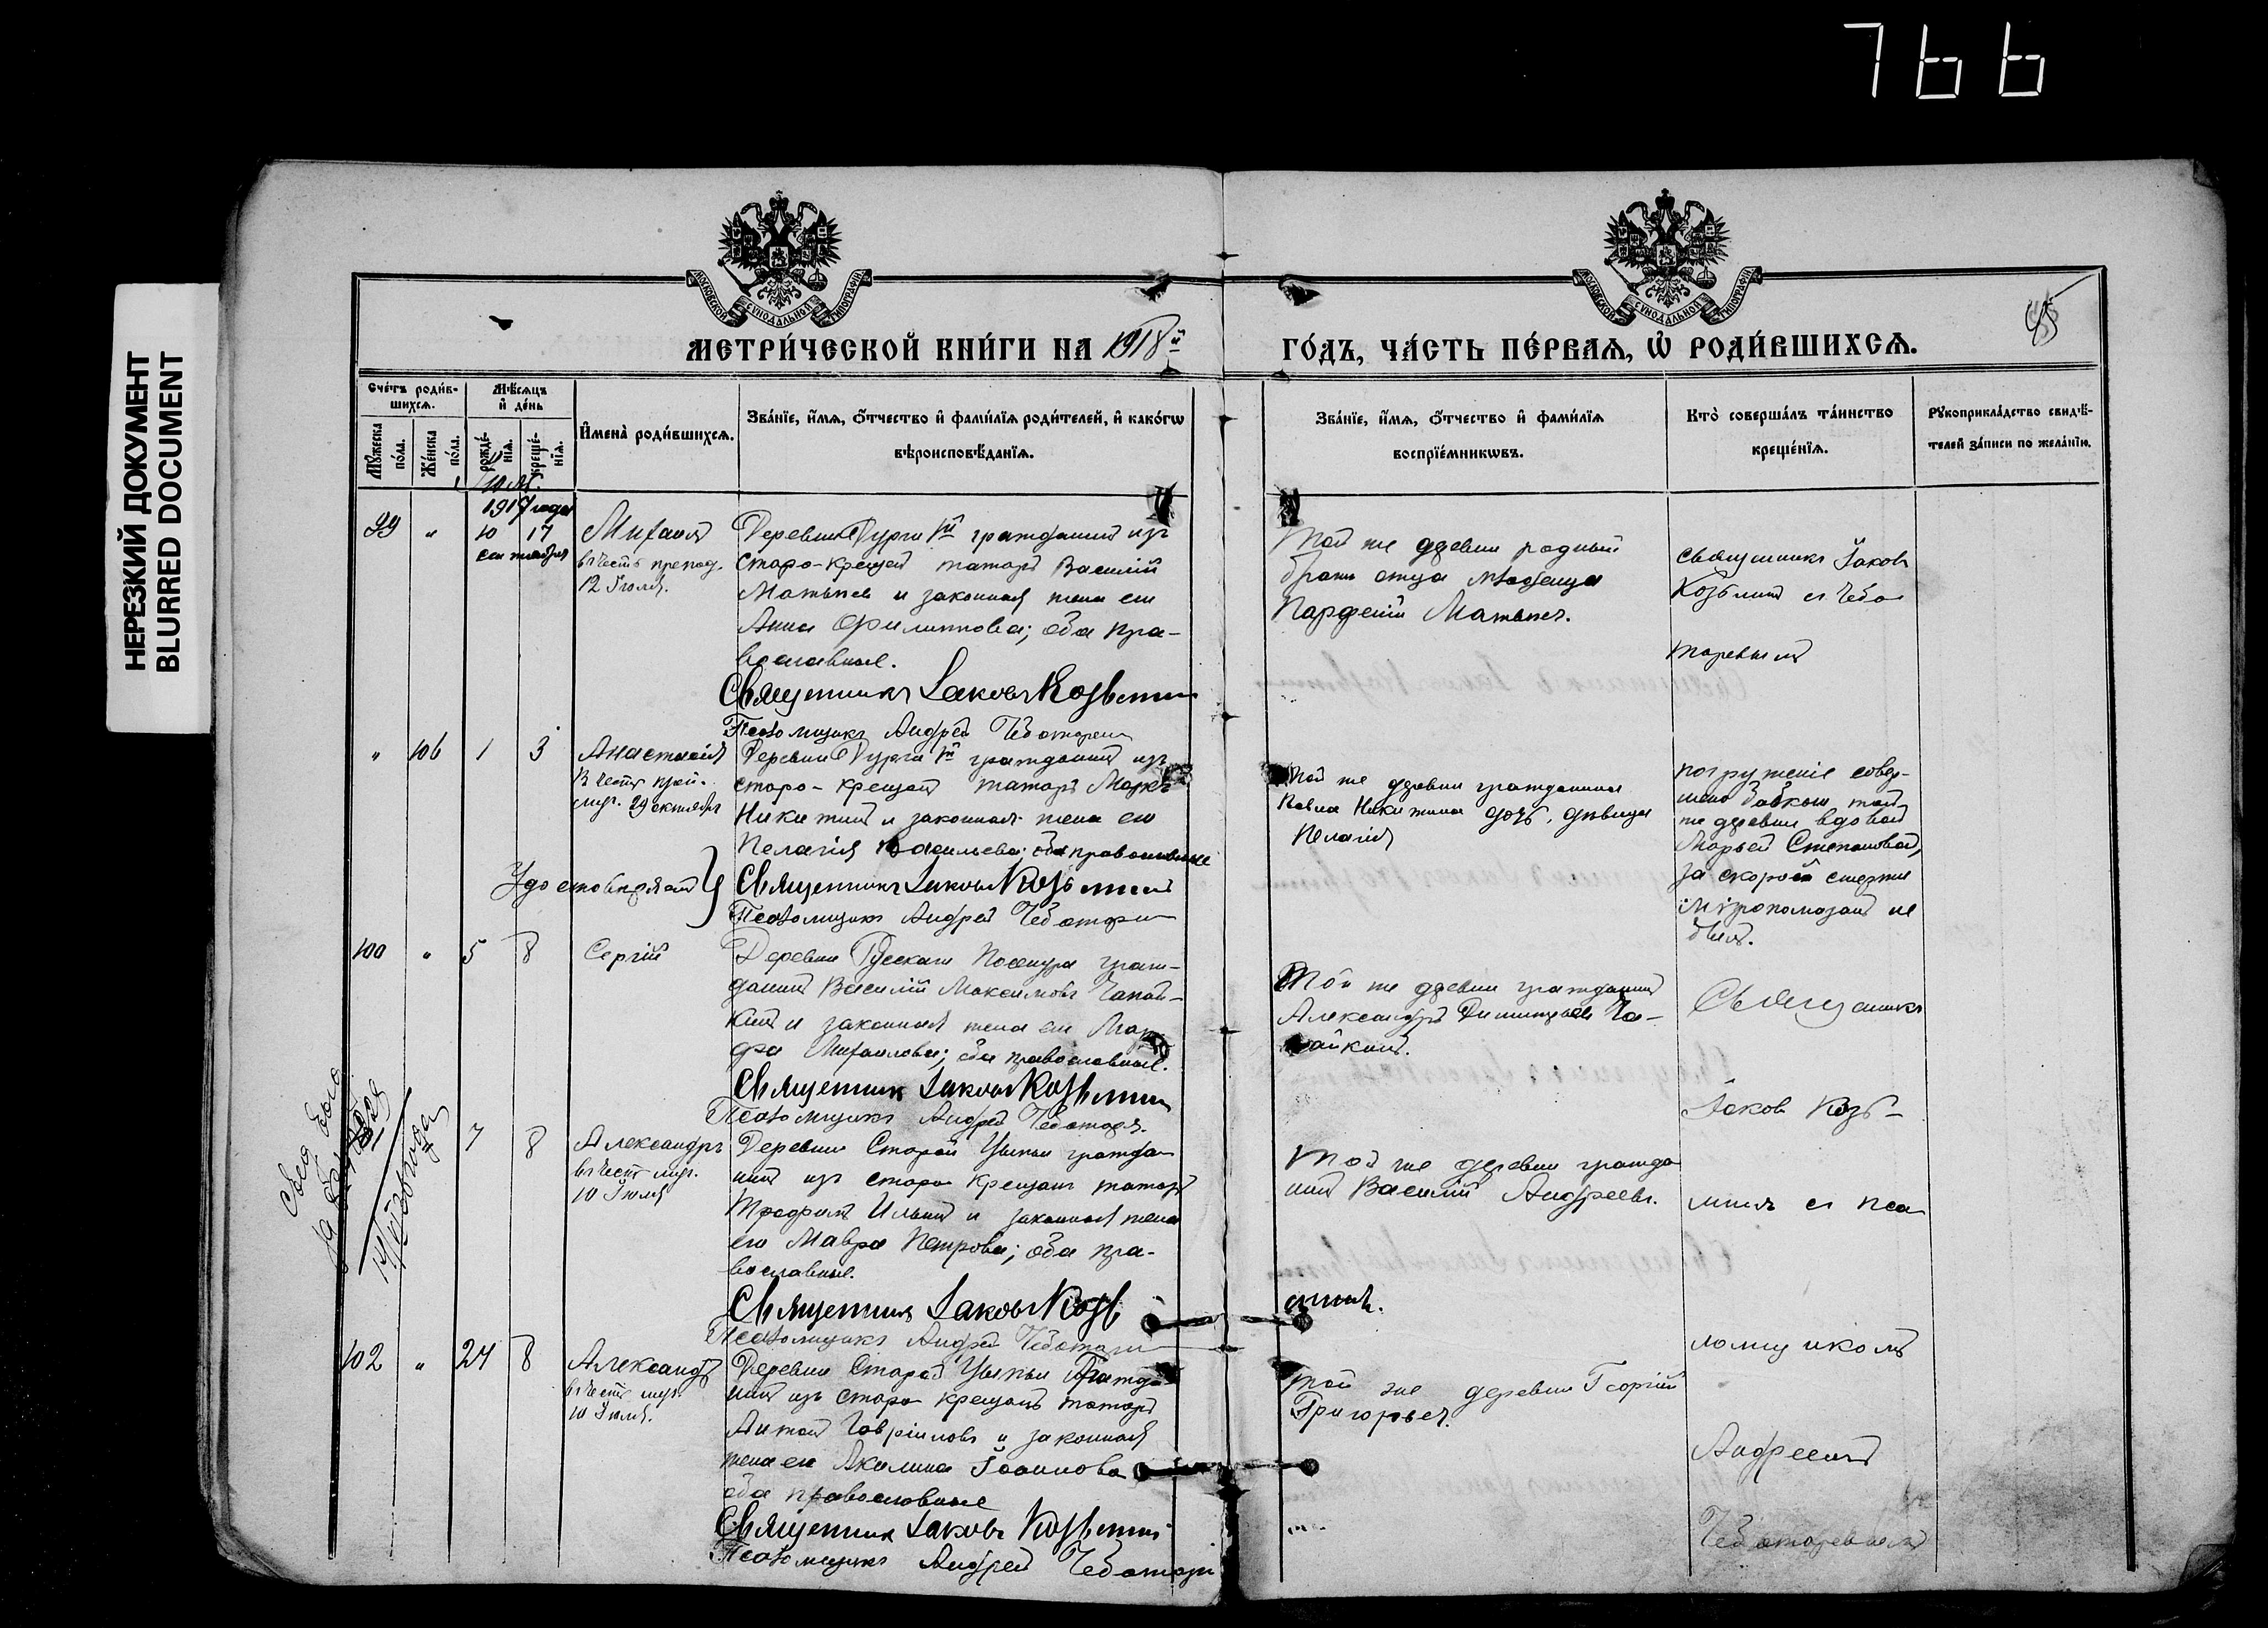 766
НЕРЕЗКИЙ ДОКУМЕНТ
BLURRED DOCUMENT
МОСКОВСКОЙ СѴНОДАЛЬНОЙ ТИПОГРАФІИ
МОСКОВСКОЙ СѴНОДАЛЬНОЙ ТИПОГРАФІИ
85
МЕТРИ́ЧЕСКОЙ КНИ́ГИ НА 1918й ГО́ДЪ, ЧА́СТЬ ПЕ́РВАѦ, Ѡ҆ РОДИ́ВШИХСѦ.
Сче́тъ роди́в-
шихсѧ.
Мꙋ́жеска по́ла.
Же́нска по́ла.
Мѣ́сѧцъ
и҆ де́нь
рожде́-
нїѧ.
креще́-
нїѧ.
И҆мена̀ роди́вшихсѧ.
Зва́нїе, и҆́мѧ, ѻ҆́тчество и҆ фами́лїѧ роди́телей, и҆ како́гѡ
вѣроисповѣ́данїѧ.
Зва́нїе, и҆́мѧ, ѻ҆́тчество и҆ фами́лїѧ
воспрїе́мникѡвъ.
Кто̀ соверша́лъ та́инство
креще́нїѧ.
Рꙋкоприкла́дство свидѣ́-
телей за́писи по жела́нїю.
1917 года
99 " 10 17
сентября
Михаилъ
въ честь препод.
12 Іюля.
Деревни Дурги гражданинъ изъ
старо-крещен татаръ Василій
Матвѣевъ и законная жена его
Анна Филиппова; оба пра-
вославные.
Священникъ Іаковъ Козьминъ
Псаломщикъ Андрей Чеботаревъ
Той же деревни родный
братъ отца младенца
Парфеній Матвѣевъ.
Священникъ Іаковъ
Козьминъ съ Чебо-
таревымъ
" 106 1 3
Анастасія
въ честь
29 октября
Деревни Дурги гражданинъ изъ
старо-крещен татаръ Маркъ
Никитинъ и законная жена его
Пелагія Васильева; оба православные
Удостовѣряемъ
Священникъ Іаковъ Козьминъ
Псаломщикъ Андрей Чеботаревъ
той же деревни гражданина
Павла Никитина дочь, дѣвица
Пелагія
погруженіе совер-
шено бабкою той
же деревни вдовой
Марьей Степановой,
за скорой смертью
мѵропомазанъ не
былъ.
100 " 5 8
Сергій
Деревни Русскаго граж-
данинъ Василій Максимовъ Чапай-
кинъ и законная жена его Мар-
фа Михаилова; оба православные.
Священникъ Іаковъ Козьминъ
Псаломщикъ Андрей Чеботаревъ
Той же деревни гражданинъ
Александръ Димитріевъ Ча-
пайкинъ.
Священникъ
Іаковъ Козь-
минъ съ пса-
ломщикомъ
Андреемъ
Чеботаревымъ
7 8
Александръ
въ честь муч.
10 Іюля
Деревни Старой Цыпьи гражда-
нинъ изъ старо крещен татаръ
Трофимъ Ильинъ и законная жена
его Мавра Петрова; оба пра-
вославные.
Священникъ Іаковъ Козь
минъ.
Псаломщикъ Андрей Чеботаревъ
Той же деревни гражда
нинъ Василій Андреевъ.
102 " 27 8
Александръ
въ честь муч.
10 Іюля.
Деревни Старой Цыпьи Гражда-
нинъ изъ старо крещенъ татаръ
Антонъ Гавріиловъ и законная
жена его Акилина Іоаннова
оба православные
Священникъ Іаковъ Козьминъ
Псаломщикъ Андрей Чеботаревъ
той же деревни Георгій
Григорьевъ.